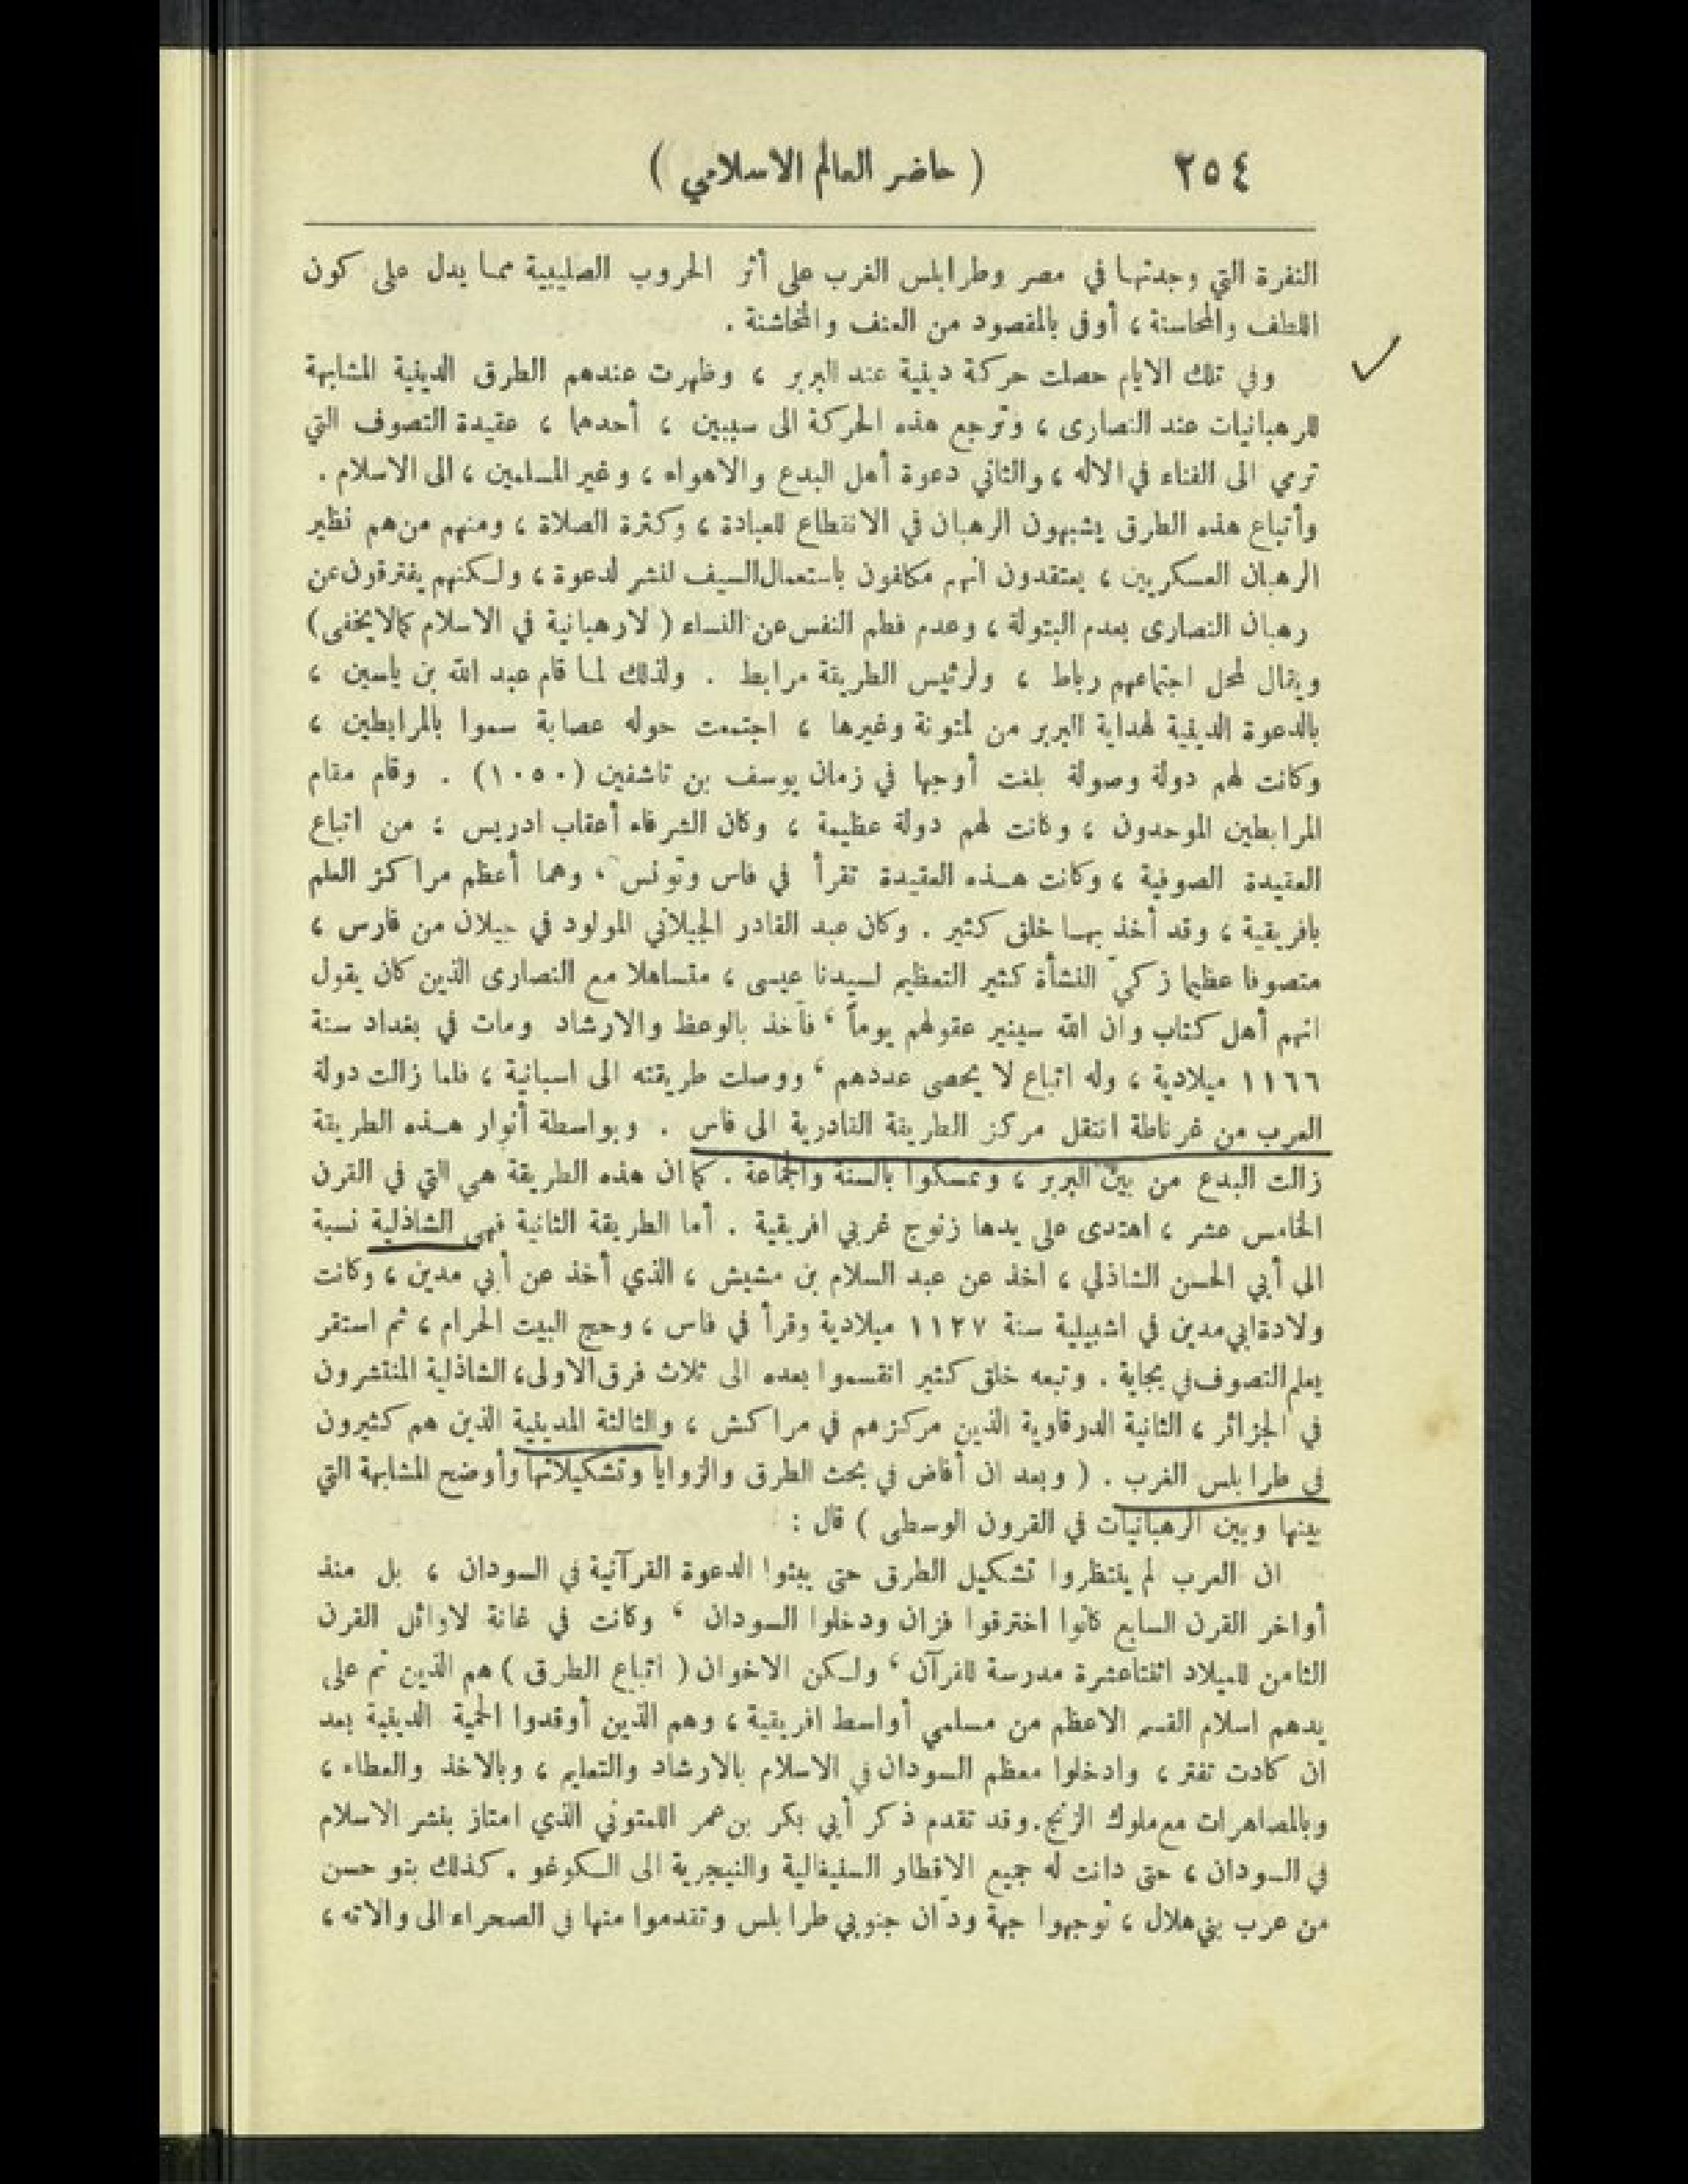 ٢٥٤
( حاضر العالم الاسلامي )
النفرة التي وجدتها في مصر وطرابلس الغرب على أثر الحروب الصليبية مما يدل على كون
اللطف والمحاسنة ، أوفى بالمقصود من العنف والمخاشنة .
وفي تلك الايام حصلت حركة دينية عند البربر ، وظهرت عندهم الطرق الدينية المشابهة
للرهبانيات عند النصارى ، وترجع هذه الحركة الى سببين ، أحدهما ، عقيدة التصوف التي
ترمي الى الفناء في الاله ، والثاني دعوة أهل البدع والاهواء ، وغير المسلمين ، الى الاسلام .
وأتباع هذه الطرق يشبهون الرهبان في الانقطاع للعبادة ، وكثرة الصلاة ، ومنهم من هم نظير
الرهبان العسكريين ، يعتقدون انهم مكلفون باستعمال السيف لنشر لدعوة ، ولكنهم يفترقون عن
رهبان النصارى بعدم البتولة ، وعدم فطم النفس عن النساء ( لارهبانية في الاسلام كما لا يخفى )
ويقال لمحل اجتماعهم رباط ، ولرئيس الطريقة مرابط . ولذلك لما قام عبد الله بن ياسين ،
بالدعوة الدينية لهداية البربر من لمتونة وغيرها ، اجتمعت حوله عصابة سموا بالمرابطين ،
وكانت لهم دولة وصولة بلغت أوجها في زمان يوسف بن تاشفين (١٠٥٠) . وقام مقام
المرابطين الموحدون ، وكانت لهم دولة عظيمة ، وكان الشرفاء أعقاب ادريس ، من اتباع
العقيدة الصوفية ، وكانت هذه العقيدة تقرأ في فاس وتونس ، وهما أعظم مراكز العلم
بافريقية ، وقد أخذ بها خلق كثير . وكان عبد القادر الجيلاني المولود في جيلان من فارس ،
متصوفا عظيما زكيّ النشأة كثير التعظيم لسيدنا عيسى ، متساهلا مع النصارى الذين كان يقول
انهم أهل كتاب وان الله سينير عقولهم يوماً ، فأخذ بالوعظ والارشاد ومات في بغداد سنة
١١٦٦ ميلادية ، وله اتباع لا يحصى عددهم ، ووصلت طريقته الى اسبانية ، فلما زالت دولة
العرب من غرناطة انتقل مركز الطريقة القادرية الى فاس . وبواسطة أنوار هذه الطريقة
زالت البدع من بين البربر ، وتمسكوا بالسنة والجماعة . كما ان هذه الطريقة هي التي في القرن
الخامس عشر ، اهتدى على يدها زنوج غربي افريقية . أما الطريقة الثانية فهي الشاذلية نسبة
الى أبي الحسن الشاذلي ، اخذ عن عبد السلام بن مشيش ، الذي أخذ عن أبي مدين ، وكانت
ولادة ابي مدين في اشبيلية سنة ١١٢٧ ميلادية وقرأ في فاس ، وحج البيت الحرام ، ثم استقر
يعلم التصوف في بجاية . وتبعه خلق كثير انقسموا بعده الى ثلاث فرق الاولى ، الشاذلية المنتشرون
في الجزائر ، الثانية الدرقاوية الذين مركزهم في مراكش ، والثالثة المدينية الذين هم كثيرون
في طرابلس الغرب . ( وبعد ان أفاض في بحث الطرق والزوايا وتشكيلاتها وأوضح المشابهة التي
بينها وبين الرهبانيات في القرون الوسطى ) قال :
ان العرب لم ينتظروا تشكيل الطرق حتى يبثوا الدعوة القرآنية في السودان ، بل منذ
أواخر القرن السابع كانوا اخترقوا فزان ودخلوا السودان ، وكانت في غانة لاوائل القرن
الثامن للميلاد اثنتا عشرة مدرسة للقرآن ، ولكن الاخوان ( اتباع الطرق ) هم الذين تم على
يدهم اسلام القسم الاعظم من مسلمي أواسط افريقية ، وهم الذين أوقدوا الحمية الدينية بعد
ان كادت تفتر ، وادخلوا معظم السودان في الاسلام بالارشاد والتعليم ، وبالاخذ والعطاء ،
وبالمصاهرات مع ملوك الزنج . وقد تقدم ذكر أبي بكر بن عمر اللمتوني الذي امتاز بنشر الاسلام
في السودان ، حتى دانت له جميع الاقطار السنيغالية والنيجرية الى الكوغو . كذلك بنو حسن
من عرب بني هلال ، توجهوا جهة ودّان جنوبي طرابلس وتقدموا منها في الصحراء الى والاته ،